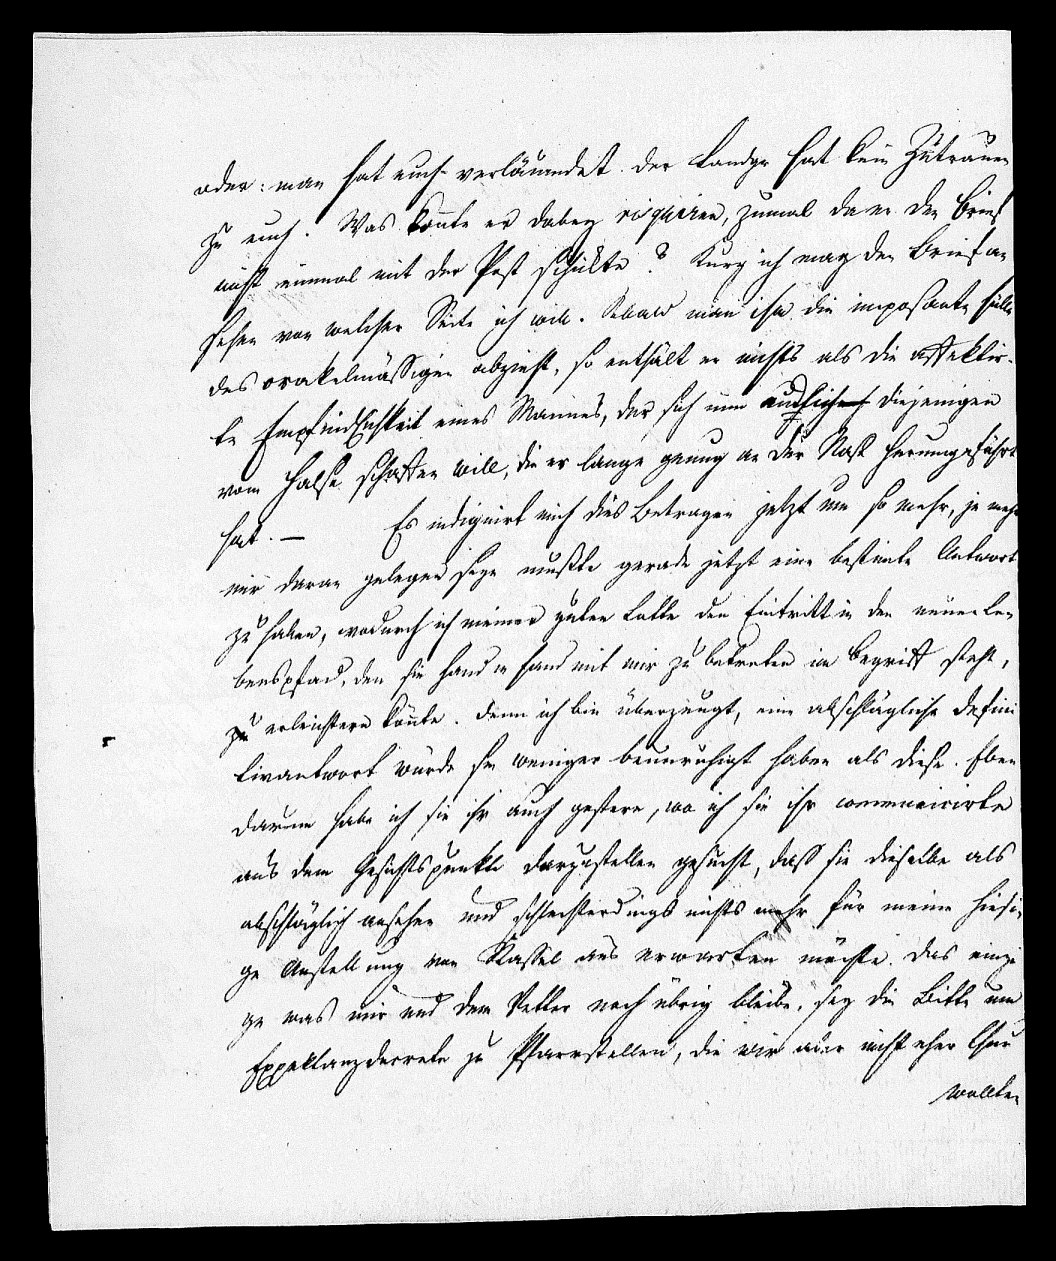 oder: man hat euch verläumdet. der Landgr hat kein Zutrauen
zu euch. Was konte er dabey risquiren, zumal da er den Brief
nicht einmal mit der Post schickte? Kurz ich mag den Brief an
sehen von welcher Seite ich will. Sobald man ihm die imposante Hülle
des orakelmässigen abzieht, so enthält er nichts als die affektir-
te Empfindlichkeit eines Mannes, der sich nun diejenigen
vom Halse schaffen will, die er lange genug an der Nase herumgeführt
hat. — Es indignirt mich dies Betragen jetzt um so mehr, je mehr
mir daran gelegen seyn mußte gerade jetzt eine bestimte Antwort
zu haben, wodurch ich meiner guten Lotte den Eintritt in den neuen Le-
benspfad, den sie Hand in Hand mit mir zu betreten im Begriff steht,
zu erleichtern könte. Denn ich bin überzeugt, eine abschlägliche Defini
tivantwort würde sie weniger beunruhigt haben als diese. Eben
darum habe ich sie ihr auch gestern, wo ich sie ihr communicirte
aus dem Gesichtspunkte darzustellen gesucht, daß sie dieselbe als
abschläglich ansehen und schlechterdings nichts mehr für meine hiesi-
ge Anstellung von Kassel aus erwarten möchte. Das einzi
ge was mir und dem Vetter noch übrig bleibe, sey die Bitte um
Expektanzdecrete zu Pfarrstellen, die wir aber nicht eher thun
wollten